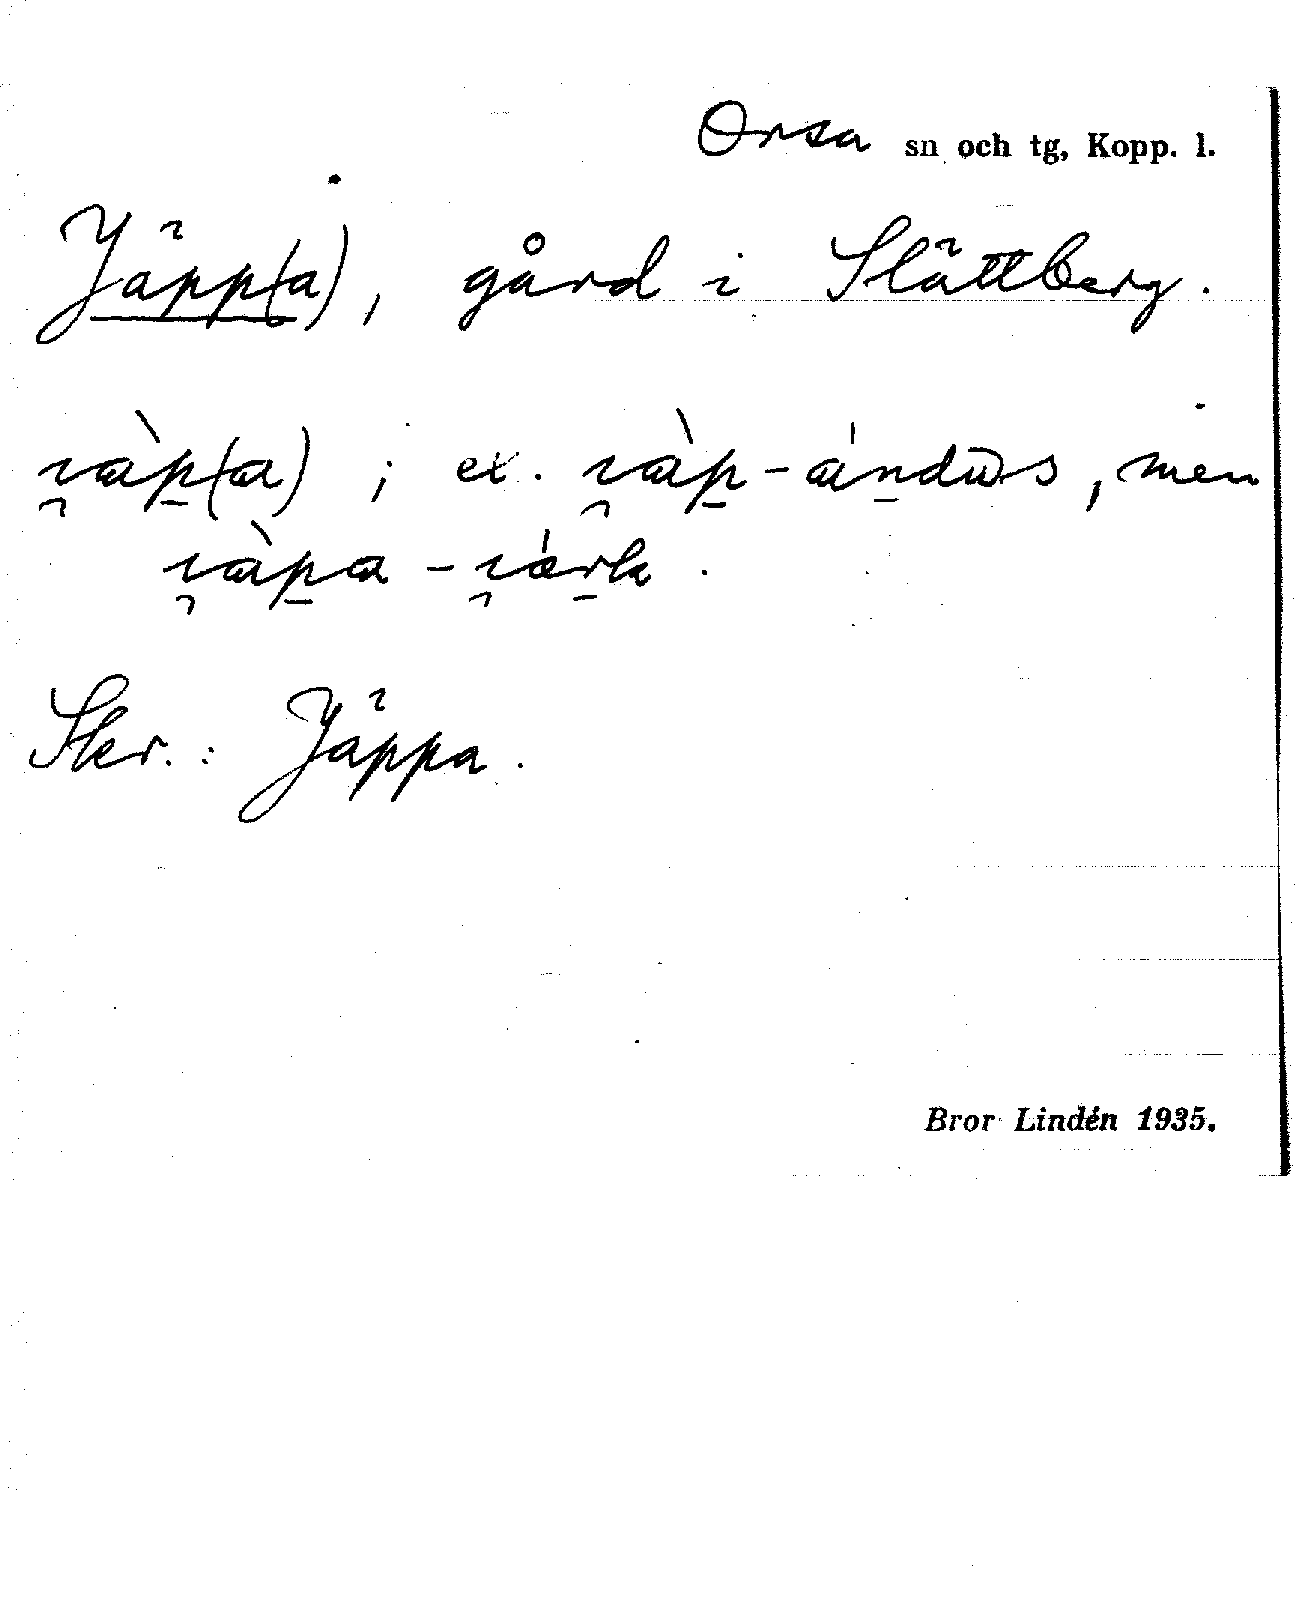 Orsa sn och tg, Kopp. l.
Jäpp(a), gård i Slättberg.
ı̯àp̠(a) ; ex. ı̯àp̠-án̠dɯs, men
ı̯àp̠a - ı̯ár̠k .
Skr. : Jäppa .
Bror Lindén 1935.